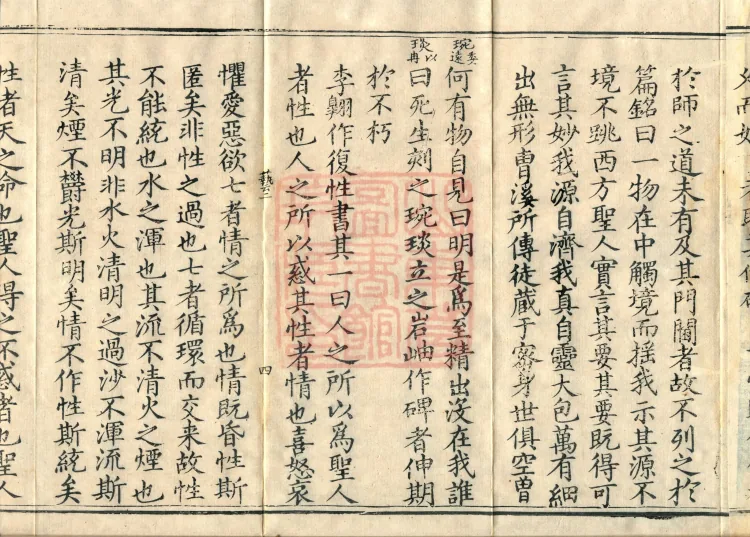 於師之道未有及其門閫者故不列之於
篇銘曰一物在中觸境而摇我示其源不
境不跳西方聖人實言其要其要既得可
言其妙我源自濟我真自靈大包萬有細
出無形曹溪所傳徒藏于密身世俱空曾
何有物自見曰明是為至精出沒在我誰
曰死生剡之琬琰立之岩岫作碑者伸期
於不朽
李翶作復性書其一曰人之所以為聖人
者性也人之所以惑其性者情也喜怒哀
懼愛惡欲七者情之所為也情既昏性斯
匿矣非性之過也七者循環而交来故性
不能統也水之渾也其流不清火之煙也
其光不明非水火清明之過沙不渾流斯
清矣煙不欝光斯明矣情不作性斯統矣
性者天之命也聖人得之不惑者也聖人
四